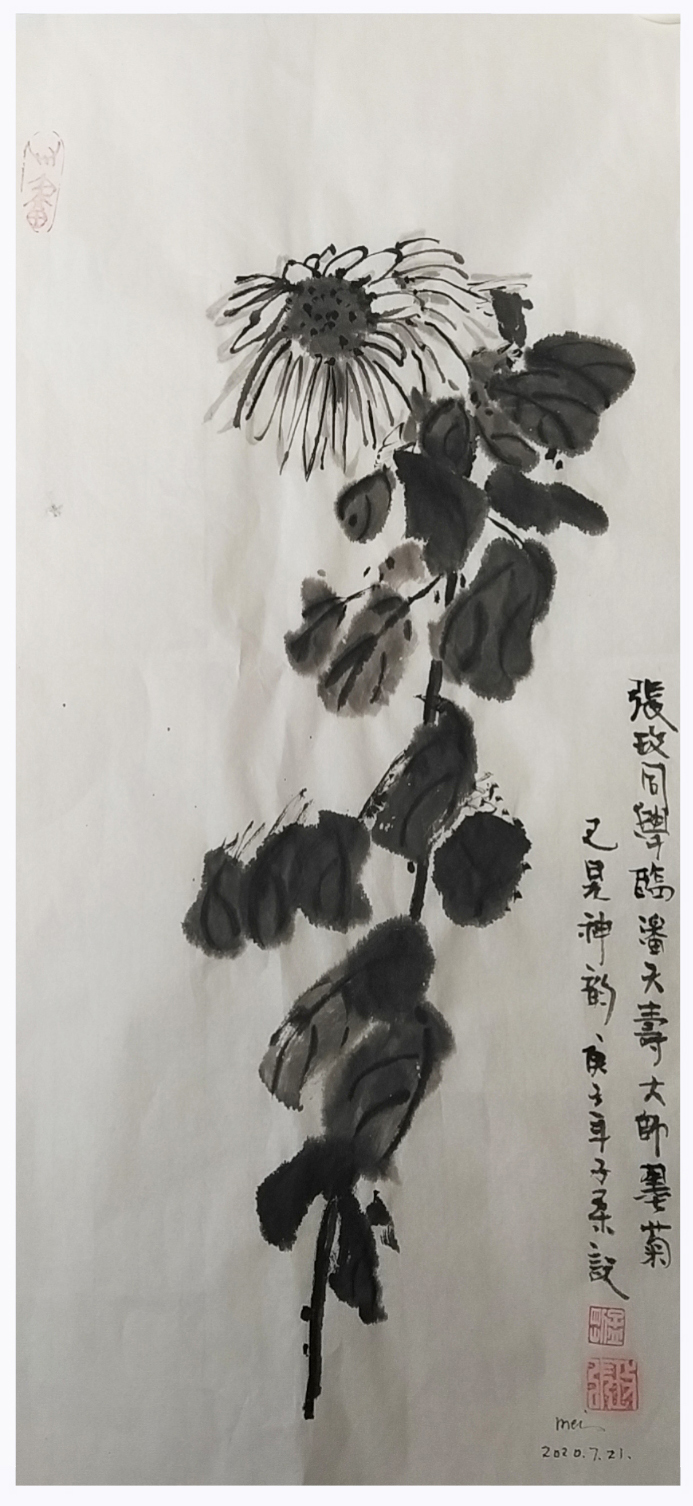 張玫同學臨潘天壽大師墨菊
已見神韵庚子年子柔設
mei
2020.7.21.